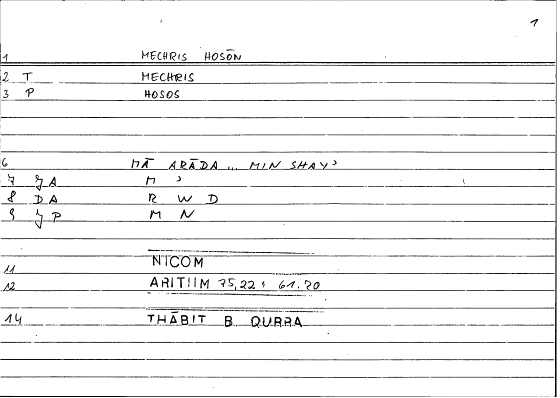 1
1 MECHRIS HOSŌN
2 T MECHRIS
3 P HOSOS
6 MĀ ARĀDA ... MIN SHAYʾ
7 JA M ʾ
8 DA R W D
9 JP M N
11 NICOM
12 ARITIIM 75,22 : 61.20
14 THĀBIT B QURRA